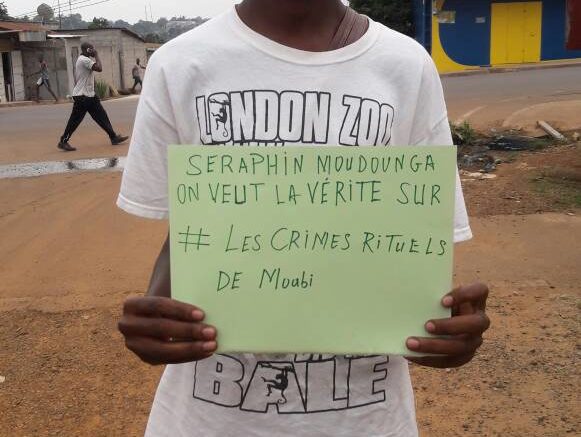 LONDON ZOO
SERAPHIN MOUDOUNGA
ON VEUT LA VÉRITE SUR
# LES CRIMES RITUELS
DE Moabi
BALE